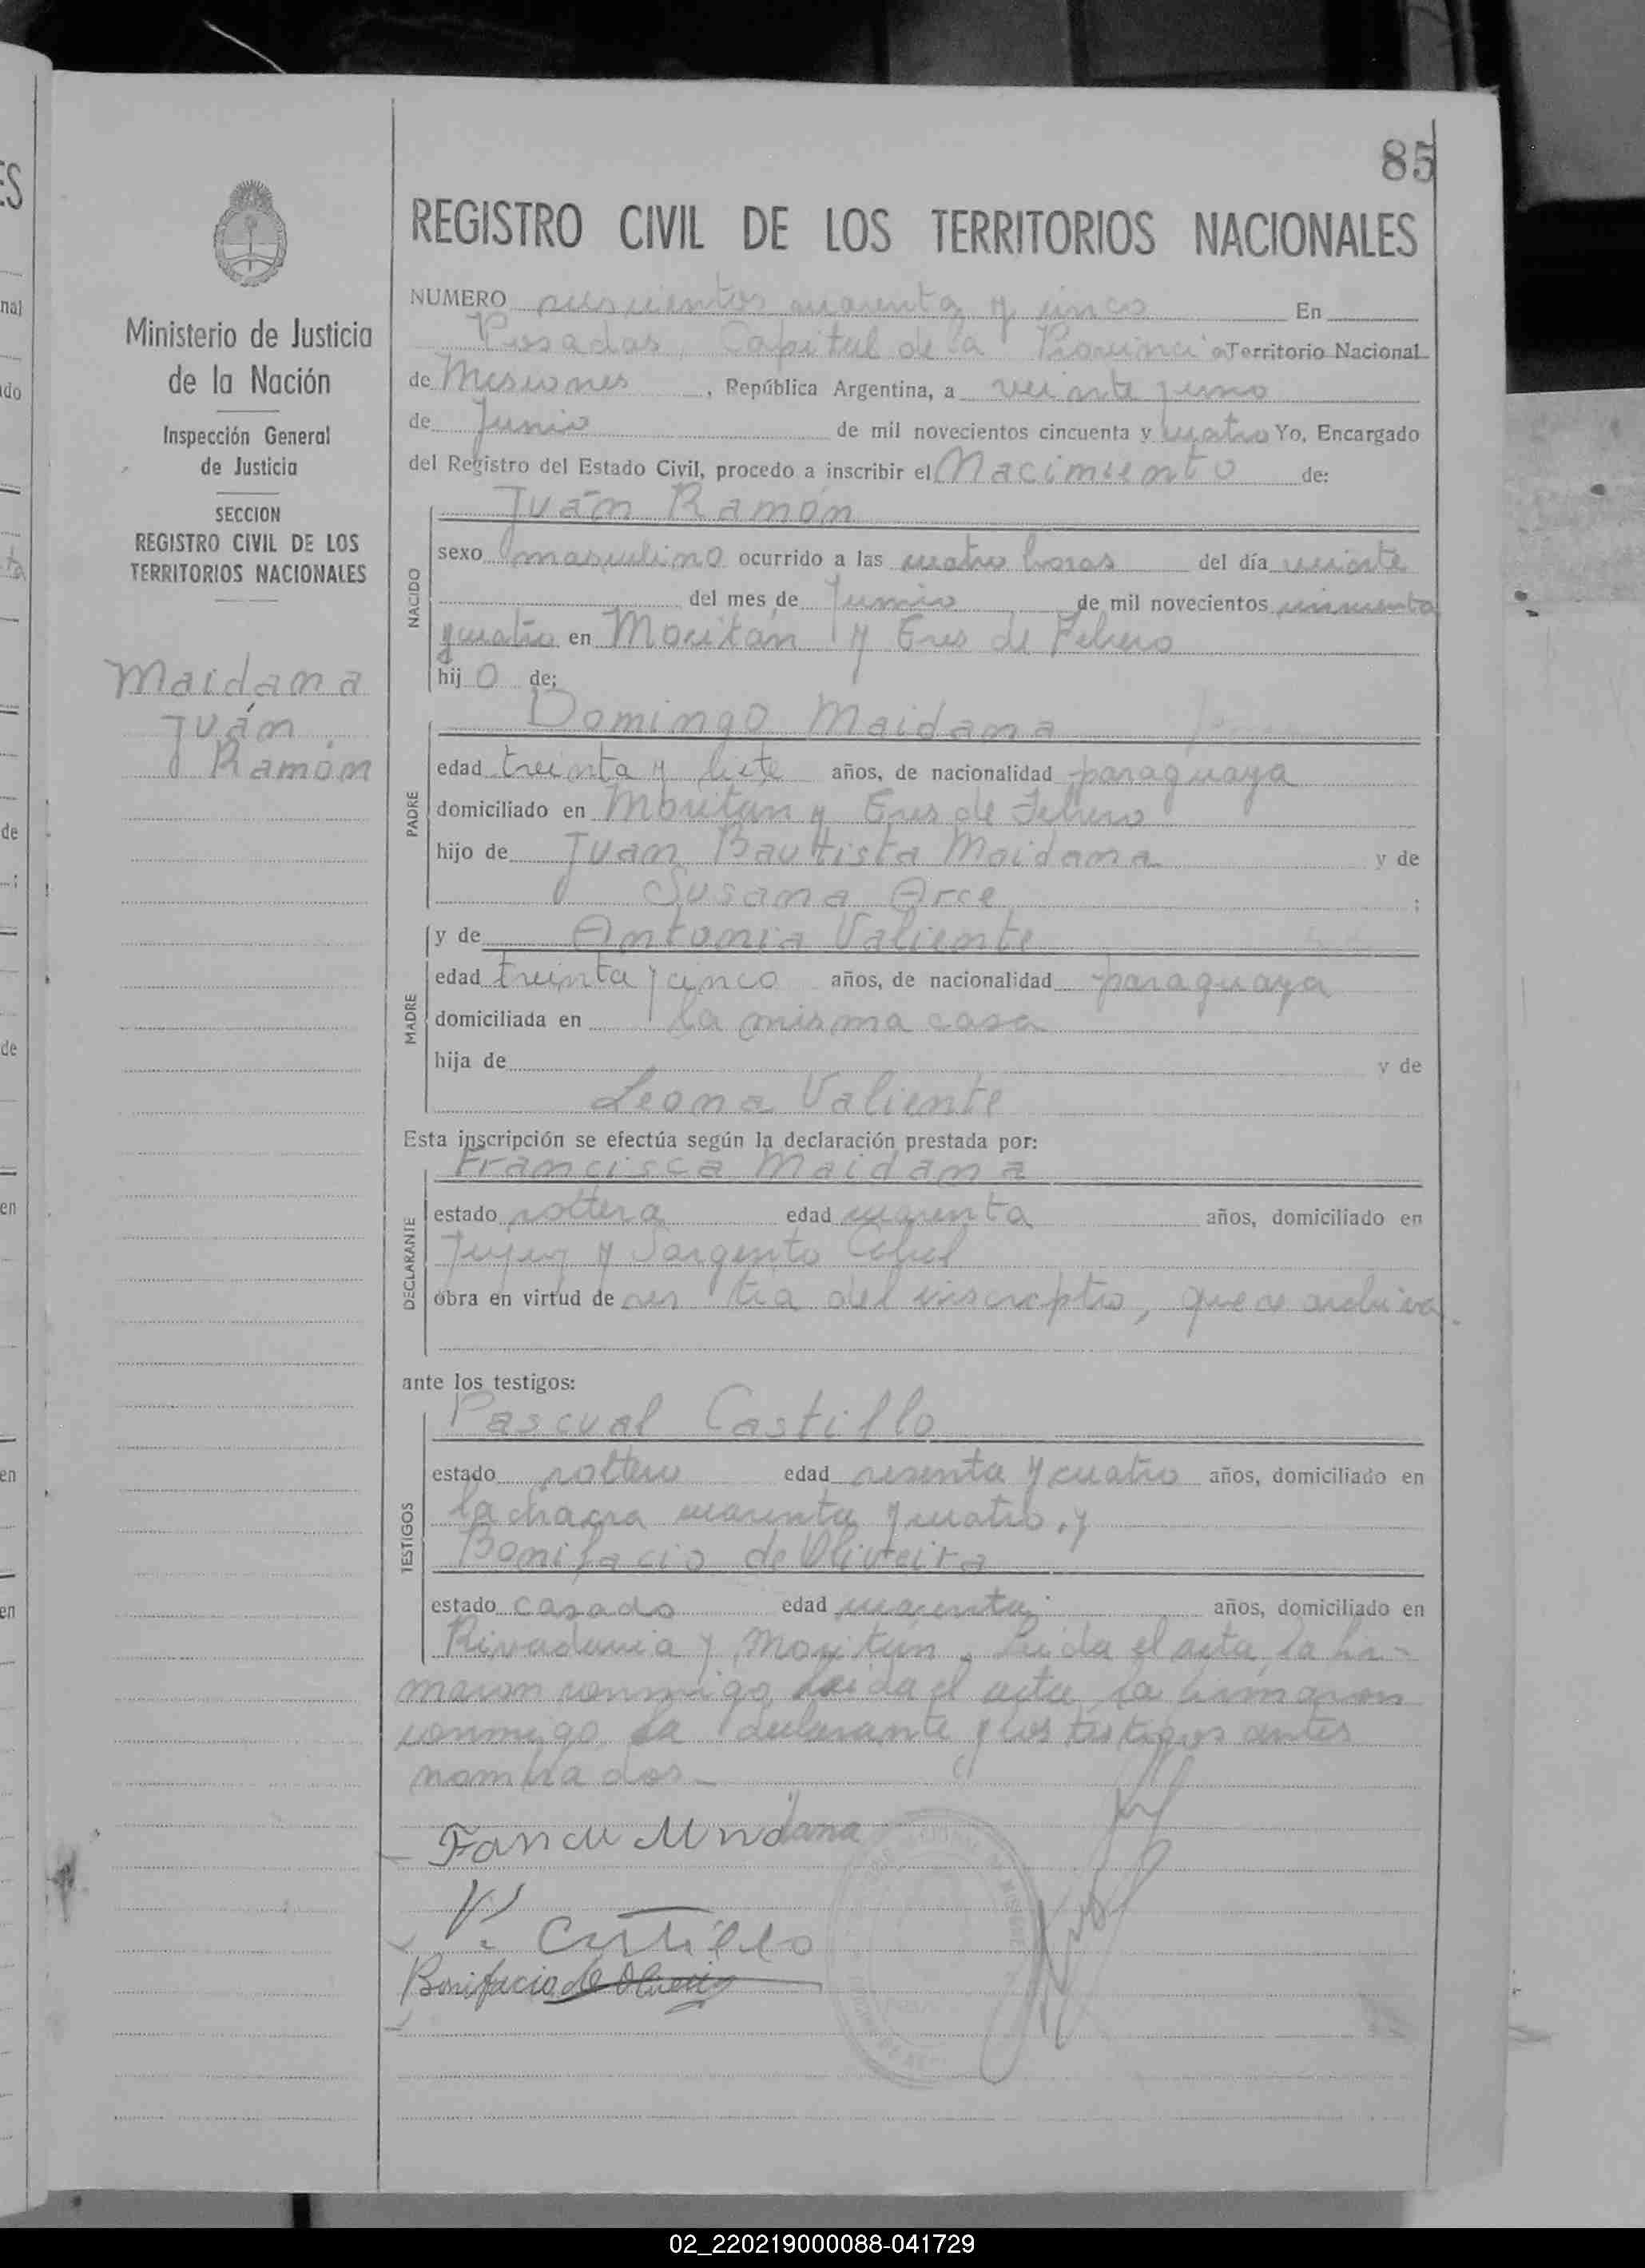 85
REGISTRO CIVIL DE LOS TERRITORIOS NACIONALES
Ministerio de Justicia
de la Nación
Inspección General
de Justicia
SECCION
REGISTRO CIVIL DE LOS
TERRITORIOS NACIONALES
Maidana
Juán
Ramón
NUMERO seiscientos cuarenta y cinco En
Posadas, Capital de la Provincia Territorio Nacional
de Misiones, República Argentina, a veinte y uno
de Junio de mil novecientos cincuenta y cuatro Yo, Encargado
del Registro del Estado Civil, procedo a inscribir el Nacimiento de:
NACIDO
Juán Ramón
sexo masculino ocurrido a las cuatro horas del día veinte
del mes de Junio de mil novecientos cincuenta
y cuatro en Moritán y Tres de Febrero
hij o de;
PADRE
Domingo Maidana
edad treinta y siete años, de nacionalidad paraguaya
domiciliado en Moritan y Tres de Febrero
hijo de Juan Bautista Maidana y de
Susana Arce ;
MADRE
y de Antonia Valiente
edad treinta y cinco años, de nacionalidad paraguaya
domiciliada en la misma casa
hija de y de
Leona Valiente
Esta inscripción se efectúa según la declaración prestada por:
DECLARANTE
Francisca Maidana
estado soltera edad cuarenta años, domiciliado en
Jujuy y Sargento Cabral
obra en virtud de ser tia del inscripto, que se archiva
ante los testigos:
TESTIGOS
Pascual Castillo
estado soltero edad sesenta y cuatro años, domiciliado en
la chacra cuarenta y cuatro, y
Bonifacio de Oliveira
estado casado edad cuarenta años, domiciliado en
Rivadavia y Moritán. Leida el acta, la fir-
maron conmigo leida el acta, la firmaron
conmigo la declarante y los testigos antes
nombrados.-
P. Castillo
Bonifacio de Oliveira
02_220219000088-041729